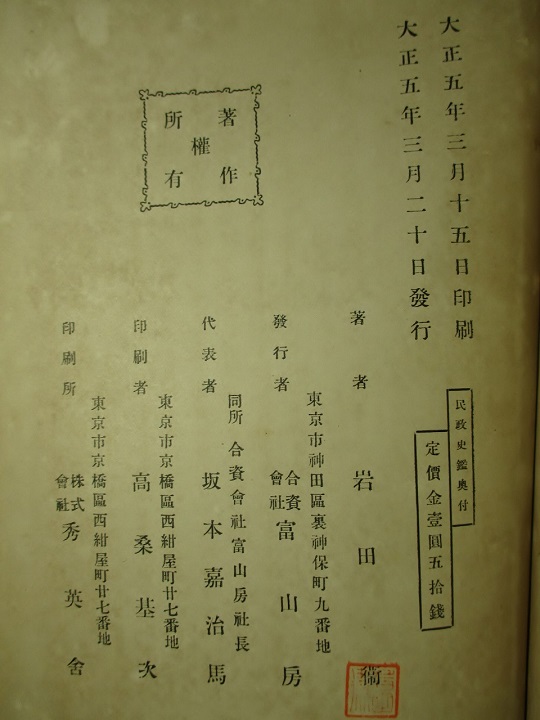 大正五年三月十五日印刷
大正五年三月二十日發行
民政史鑑奥付
定價金壹圓五拾錢
著作權所有
著者 岩田衞
東京市神田區裏神保町九番地
發行者 合資會社 富山房
同所 合資會社富山房社長
代表者 坂本嘉治馬
東京市京橋區西紺屋町廿七番地
印刷者 高桑基次
東京市京橋區西紺屋町廿七番地
印刷所 株式會社 秀英舍